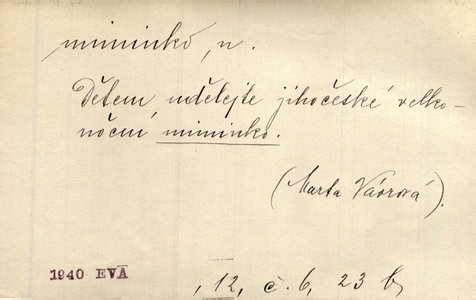 miminko, n.
Dětem udělejte jihočeské velko-
noční miminko.
(Marta Vávrová).
1940 EVA
, 12, č. 6, 23 b